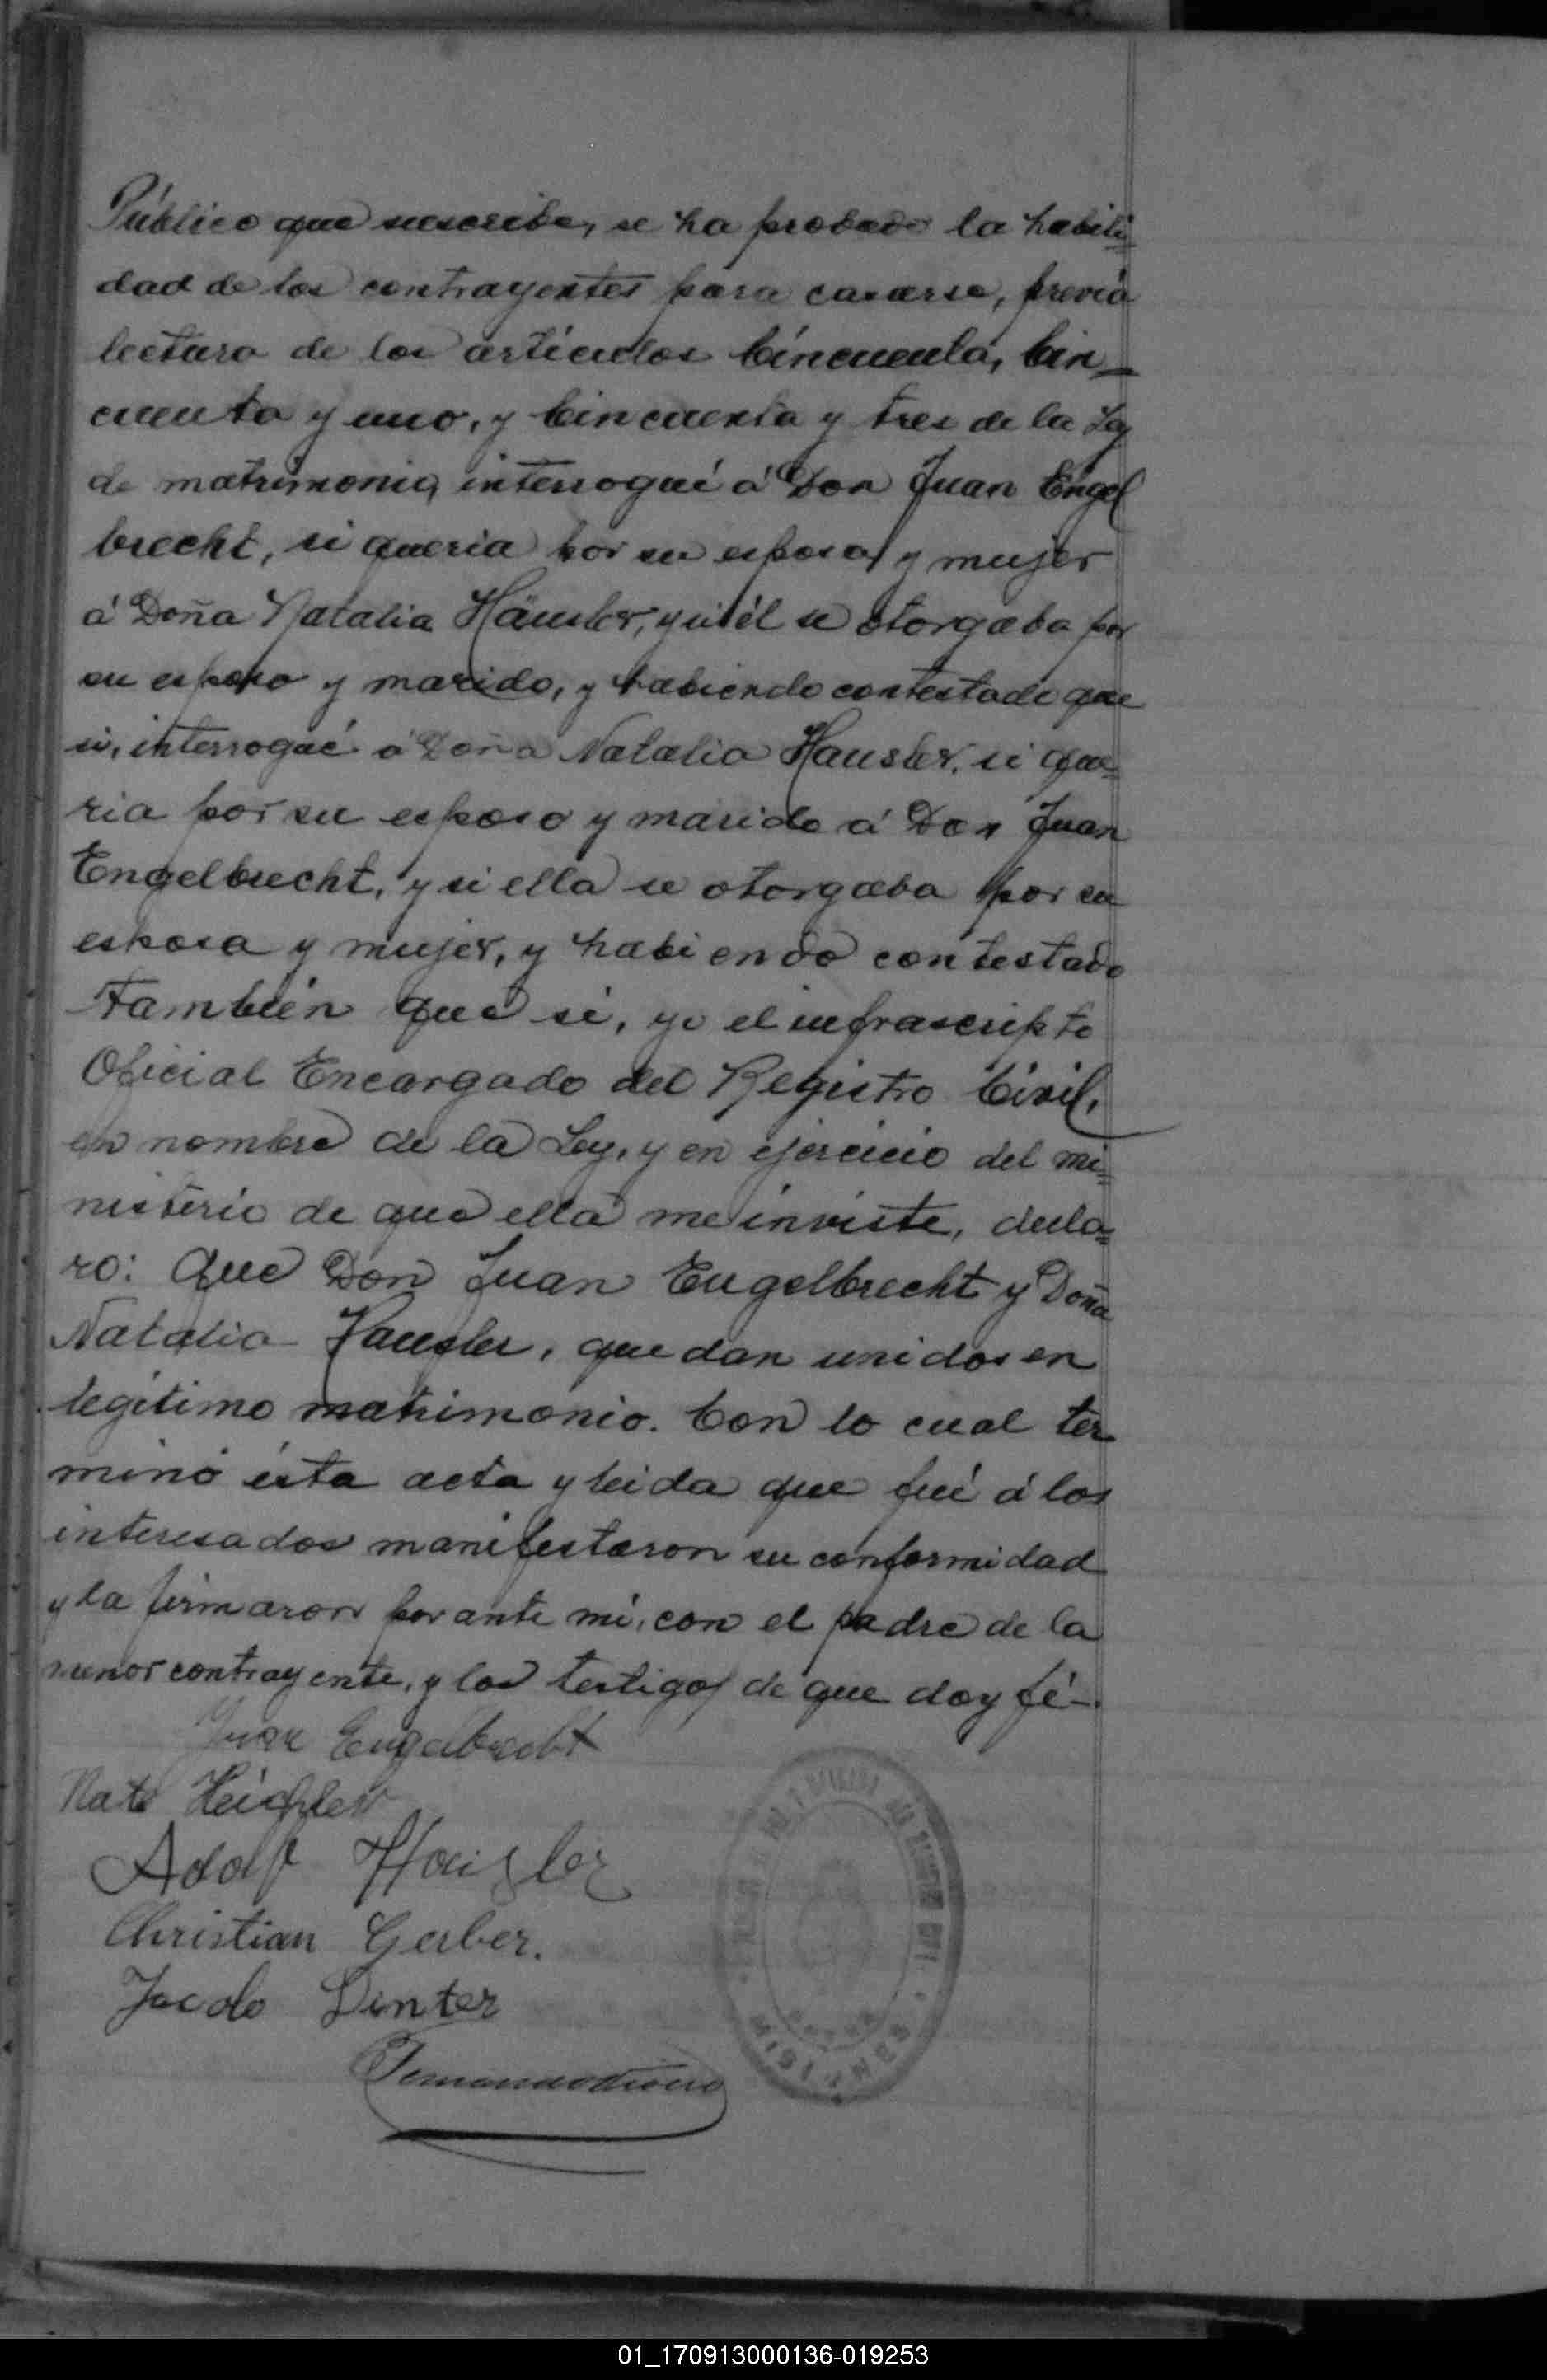 Público que suscribe, se ha probado la habili=
dad de los contrayentes para casarse, previa
lectura de los artículos Cincuenta, Cin_
cuenta y uno, y Cincuenta y tres de la Ley
de matrimonio, interrogué á Don Juan Engel
brecht, si queria por su esposa y mujer
á Doña Natalia Häusler, y si él se otorgaba por
su esposo y marido, y habiendo contestado que
si, interrogué á Doña Natalia Hausler, si que=
ria por su esposo y marido á Don Juan
Engelbrecht, y si ella se otorgaba por su
esposa y mujer, y habiendo contestado
También que si, yo el infrascripto
Oficial Encargado del Registro Civil,
en nombre de la Ley, y en ejercicio del mi=
nisterio de que ella me inviste, decla=
ro: Que Don Juan Engelbrecht y Doña
Natalia Hausler, quedan unidos en
legítimo matrimonio. Con lo cual ter
minó ésta acta y leida que fué á los
interesados manifestaron su conformidad
y la firmaron por ante mí, con el padre de la
menor contrayente, y los testigos de que doy fé-.
Juan Engelbrecht
Adolf Haüsler
Christian Gerber.
Jacob Dinter
MISIONES
01_170913000136-019253